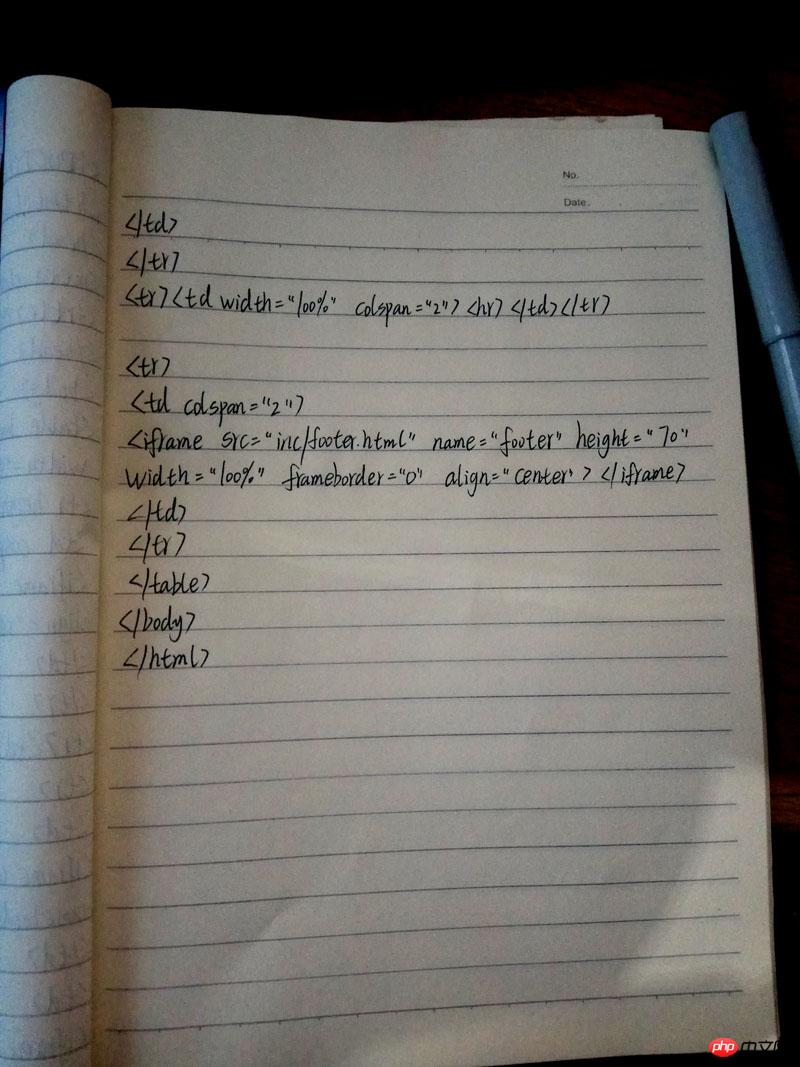 No.
Date.
</td>
</tr>
<tr><td width="100%" colspan="2"><hr></td></tr>
<tr>
<td colspan="2">
<iframe src="inc/footer.html" name="footer" height="70"
width="100%" frameborder="0" align="center"></iframe>
</td>
</tr>
</table>
</body>
</html>
php 中文